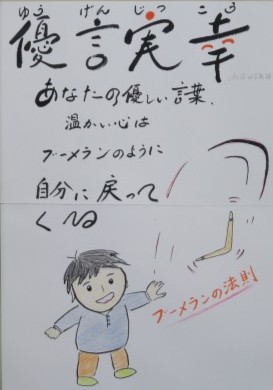 ゆう げん じつ こう
優言実幸
あなたの優しい言葉、
温かい心は
ブーメランのように
自分に戻って
くる
ブーメランの法則